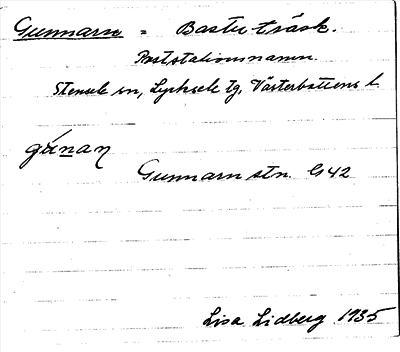 Gunnarn = Bastuträsk.
Poststationsnamn.
Stensele sn, Lycksele tg, Västerbottens l.
gánaŋ
Gunnarn stn. G 42
Lisa Lidberg 1935